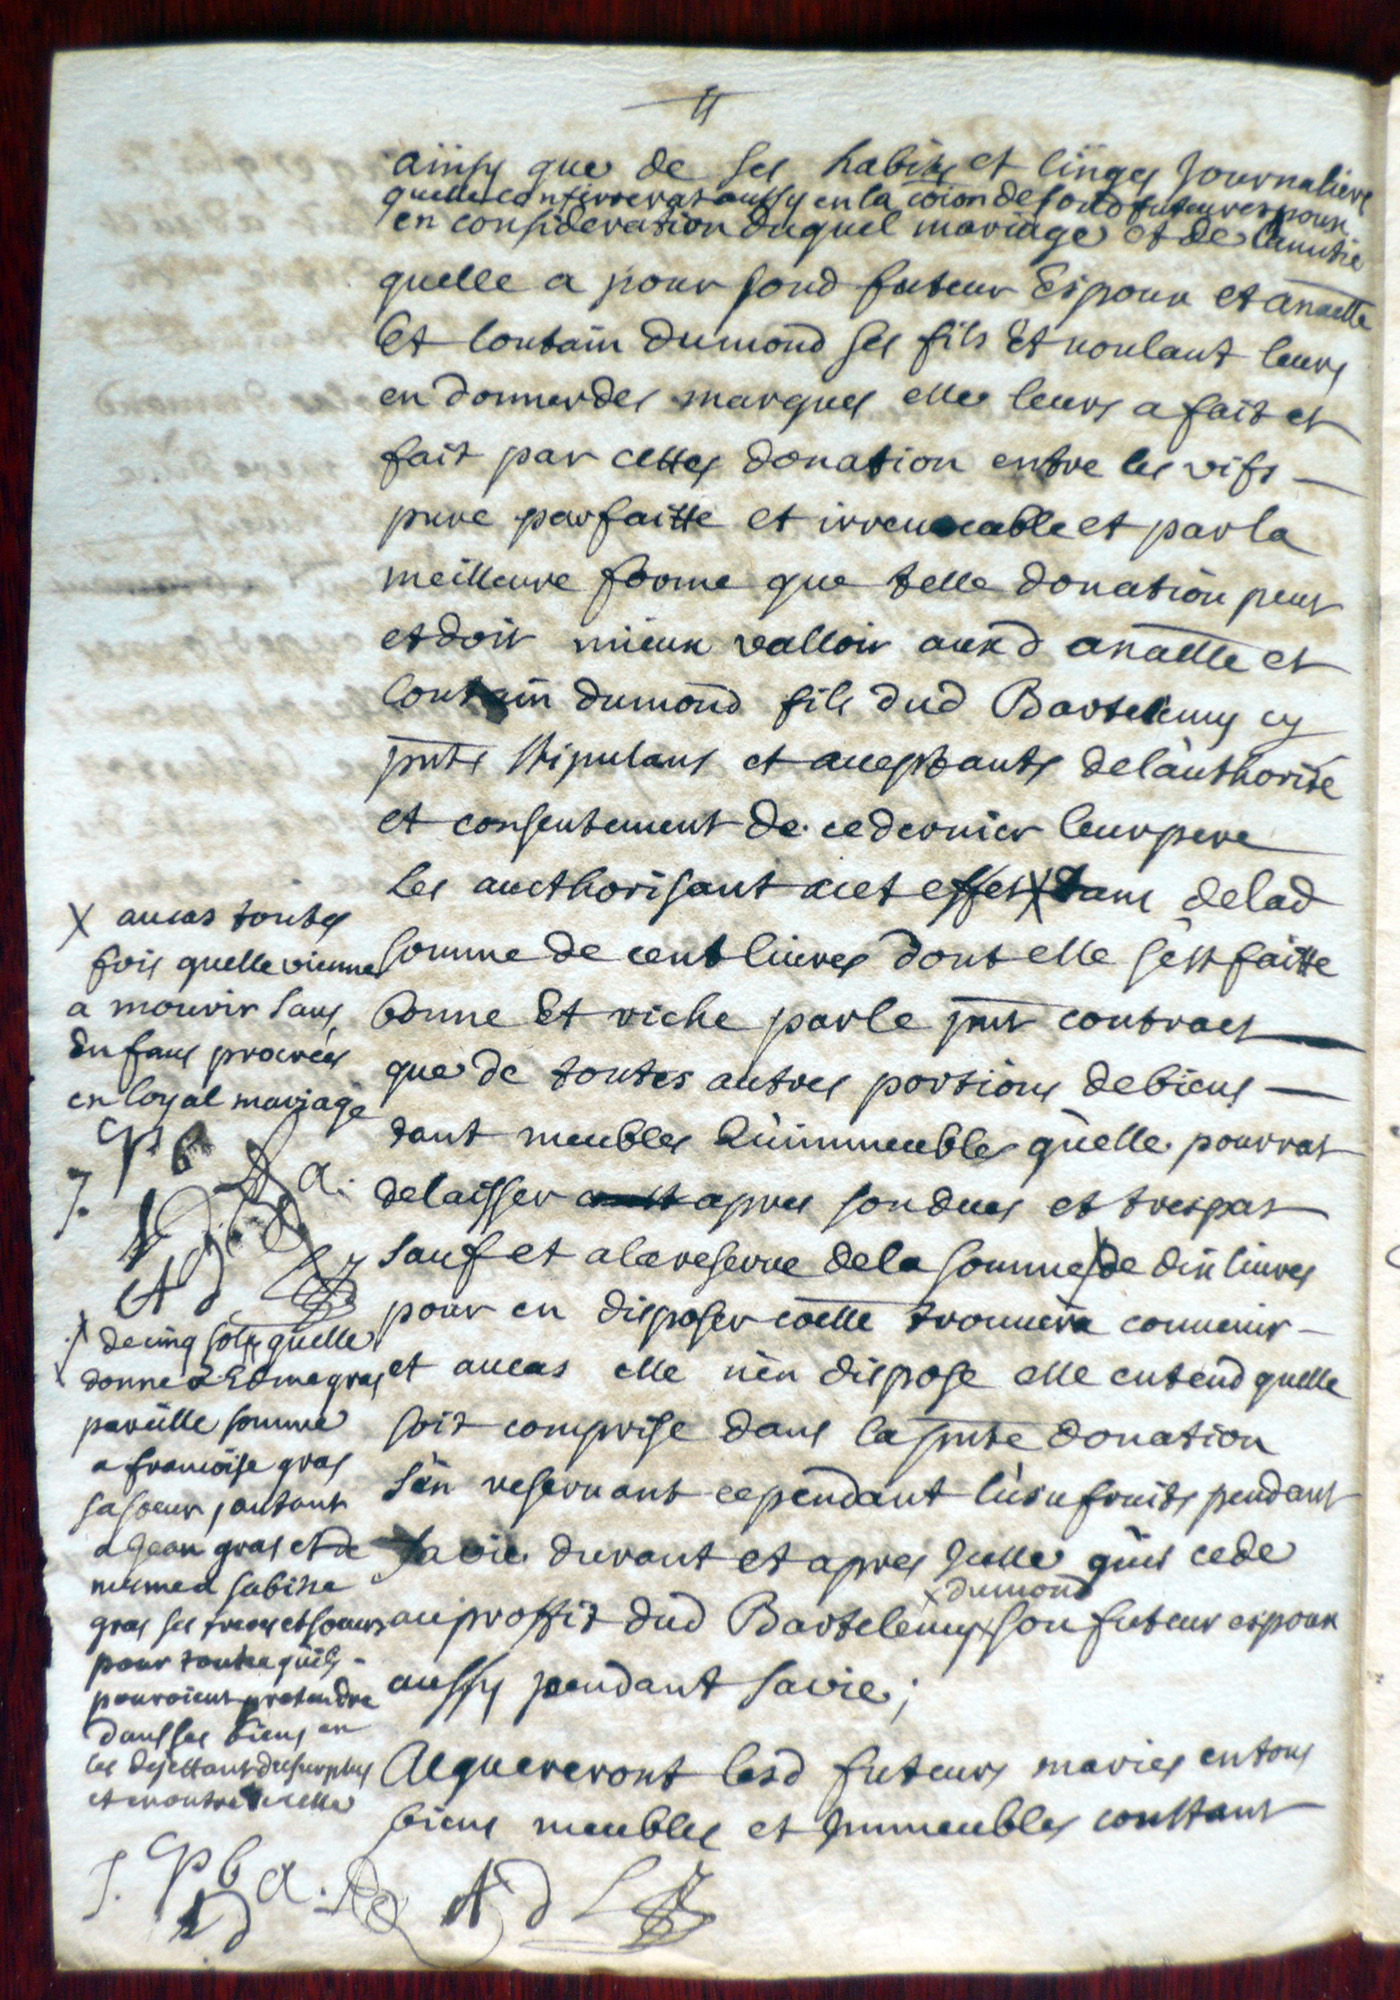 ainsy que de ses habits et linges Journaliers
quelle confirera aussy en la coion de sond futur espoux
en consideration duquel mariage et de lamitié
quelle a pour sond futeur Espoux et anatlle
Et loutain dumond ses fils Et voulant leurs
en donner des marques elle leurs a fait et
fait par cettes donation entre les vifs
pure parfaitte et irreuocable et par la
meilleure forme que telle donation peut
et doit mieux valloir auxd anatlle et
loutain dumond fils dud Bartelemy cy
pnts stipulans et acceptants de lauthorité
et consentement de ce dernier leur pere
les aucthorisant a cet effet X tant de lad
somme de cent liures dont elle s'est faitte
bonne Et riche par le pnt contract
que de toutes autres portions de biens
tant meubles qu'immeubles qu'elle pourrat
delaisser apres son deces et trespas
sauf et a la reserue de la somme X de dix liures
pour en disposer coe elle trouuera conuenir
et au cas elle n'en dispose elle entend quelle
soit comprise dans la pnte donation
s'en reseruant cependant l'usufruits pendant
sa vie durant et apres Jcelle quis cede
X dumond
au proffit dud Bartelemy X son futeur espoux
aussy pendant sa vie;
Acquereront lesd futeurs mariés en tous
biens meubles et Jmmeubles constant
X au cas toutes
fois quelle vienne
a mourir sans
enfans procréés
en loyal mariage
J. P b a.
A d
X de cinq sols quelle
donne a Edme gras
pareille somme
a francoise gras
sa soeur, autant
a Jean gras et de
mesme a sabine
gras ses freres et soeurs
pour toutes quils
pouroient pretendre
dans ses biens en
les dejettant du surplus
et moitié dicelle
J. P b a. A d